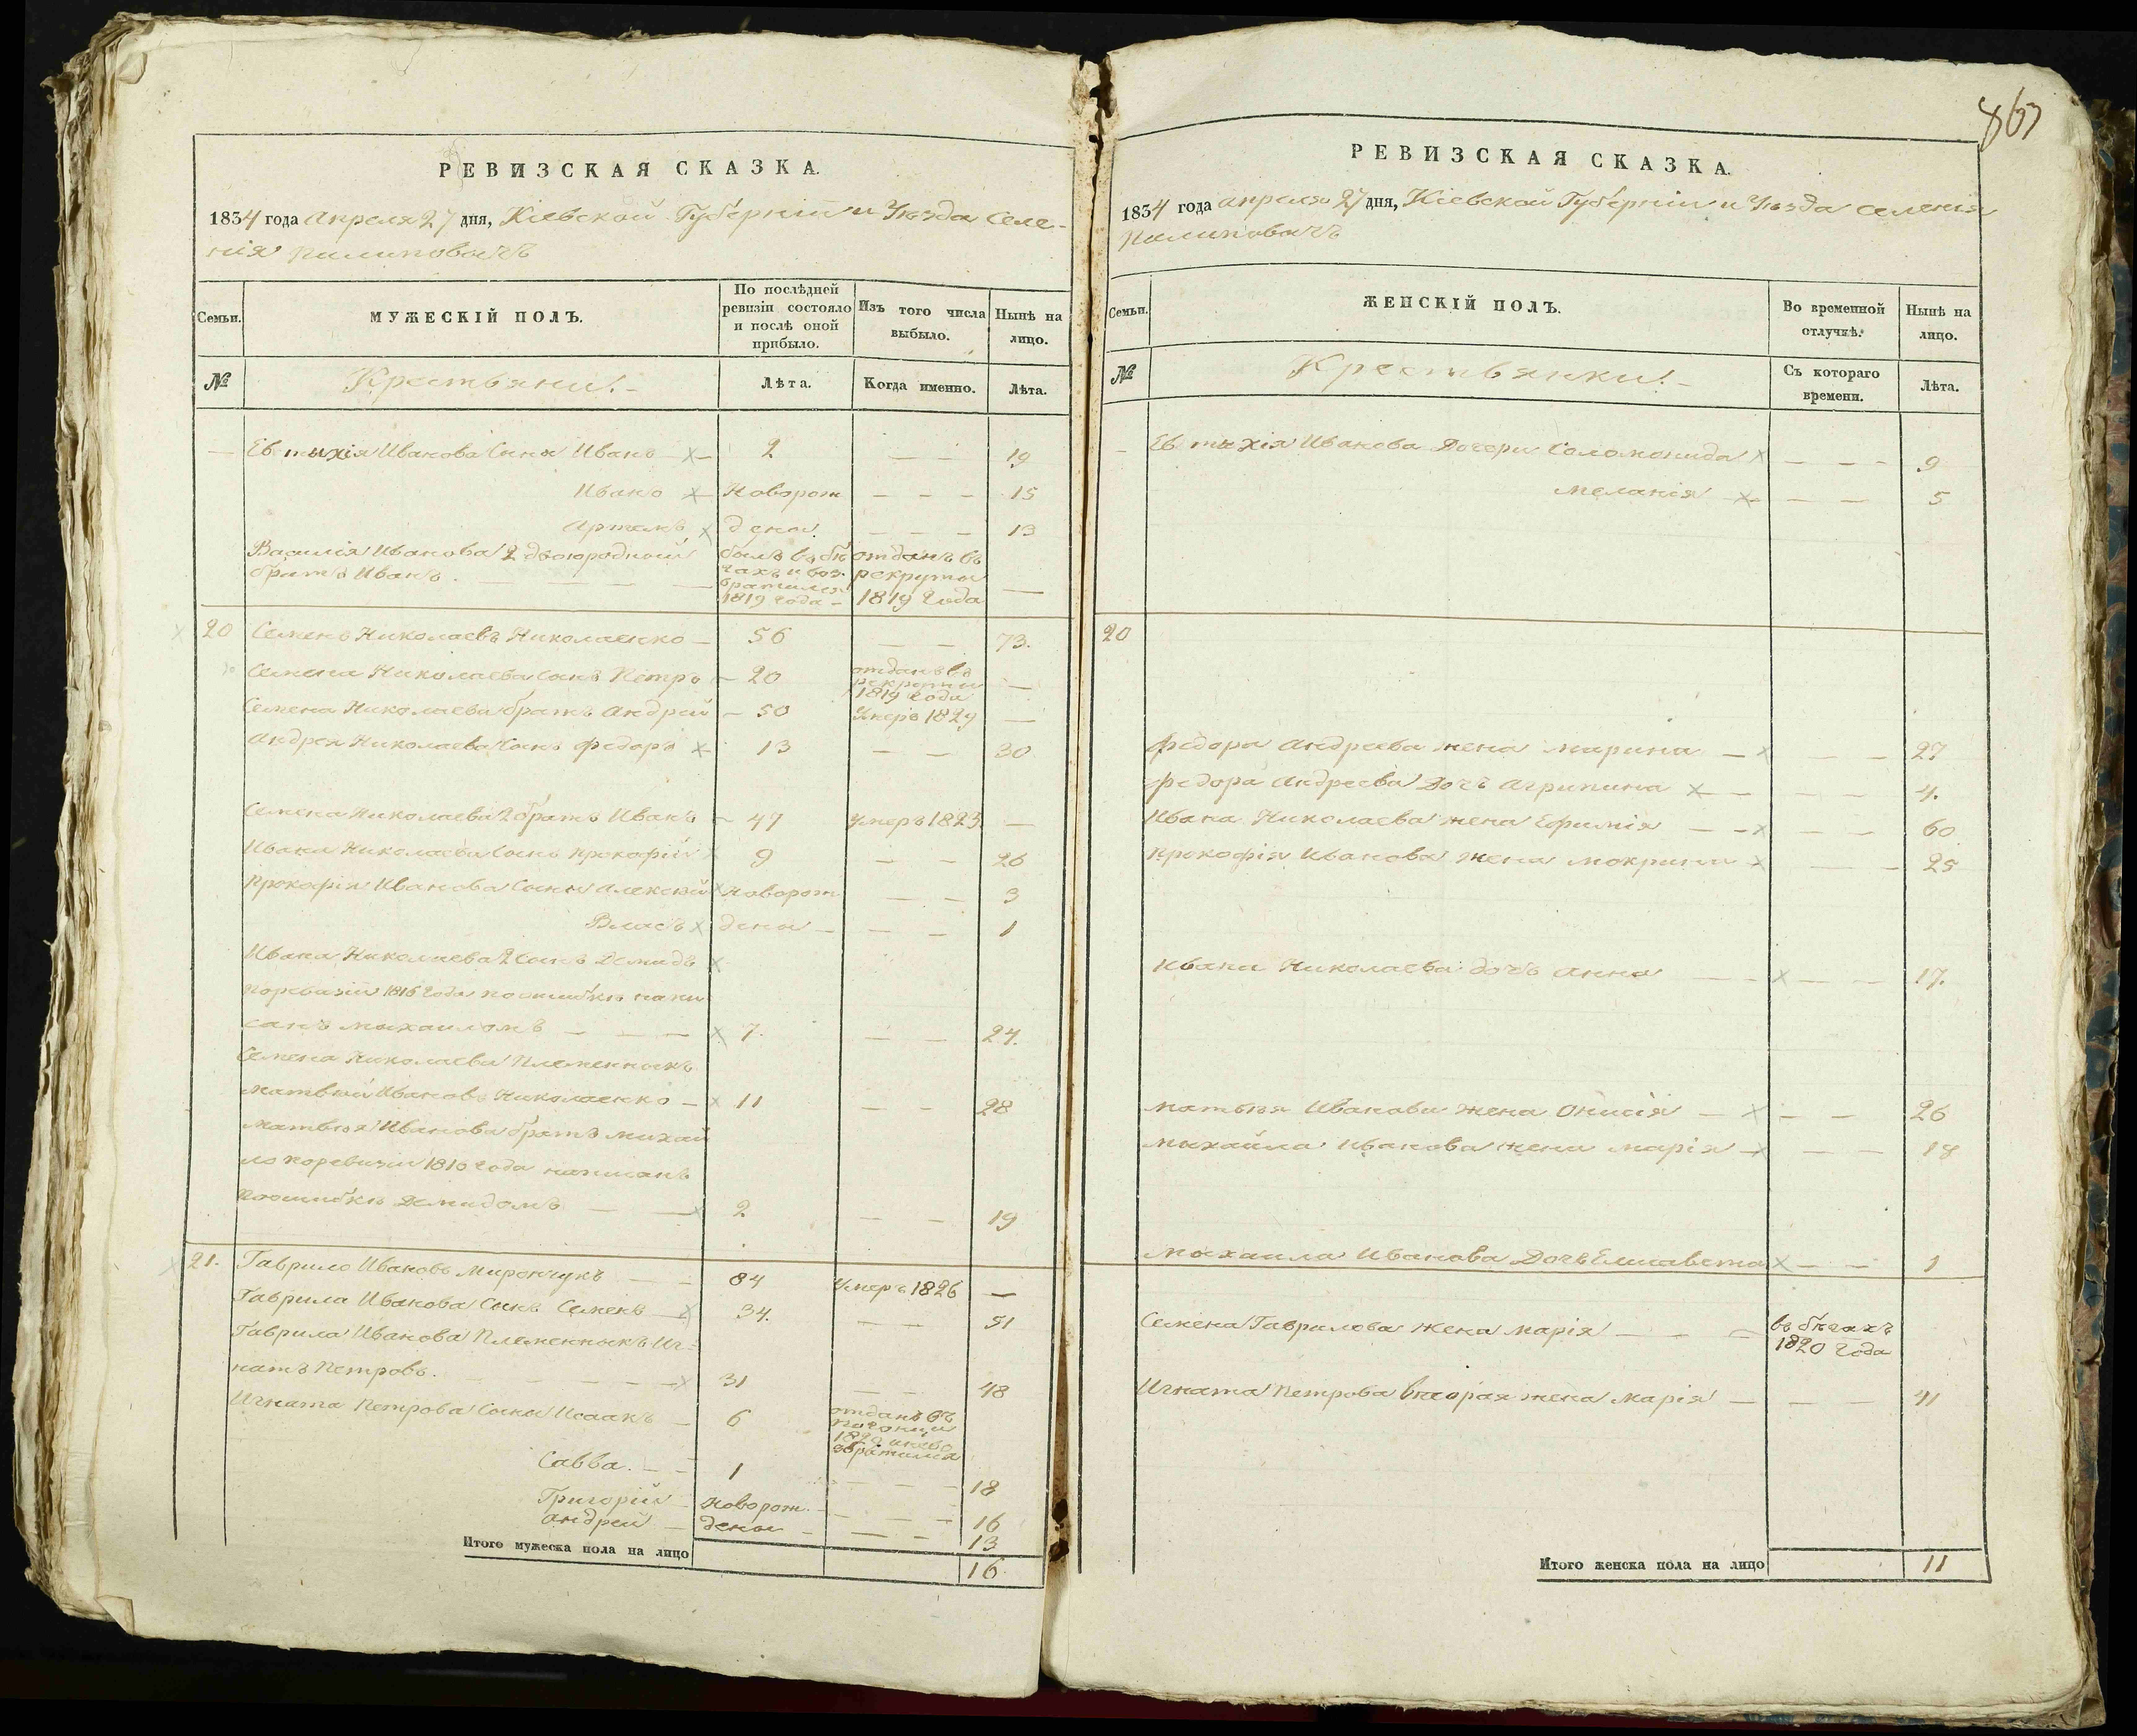 863
РЕВИЗСКАЯ СКАЗКА.
1834 года Апреля 27 дня, Кіевской Губерніи и Уѣзда Селе-
нія Пилиповичъ
Семьи.
МУЖЕСКІЙ ПОЛЪ.
По послѣдней ревизіи состояло и послѣ оной прибыло.
Изъ того числа выбыло.
Нынѣ на лицо.
№
Крестьяни:
Лѣта.
Когда именно.
Лѣта.
Евтихія Иванова Сыны Иванъ 2 19
Иванъ Новорож 15
Артемъ дены 13
Василія Иванова 2 двоюродной
братъ Иванъ.
былъ въ бѣ
гахъ и воз
вратился
1819 года
отданъ въ
рекруты
1819 Года
20 Семенъ Николаевъ Николаенко 56 73.
Семена Николаева Сынъ Петръ 20
отданъ въ
рекруты
1819 года
Семена Николаева братъ Андрей 50 Умеръ 1829
Андрея Николаева Сынъ Федоръ 13 30
Семена Николаева 2 братъ Иванъ 47 Умеръ 1823.
Ивана Николаева Сынъ Прокофій 9 26
Прокофія Иванова Сыны Алексѣй новорож 3
Власъ дены 1
Ивана Николаева 2 Сынъ Демидъ
поревизіи 1816 Года поошибкѣ напи
санъ Михаиломъ 7. 24.
Семена Николаева Племенникъ
Матвѣй Ивановъ Николаенко 11 28
Матвѣя Иванова братъ Михай
ло поревизіи 1816 Года написанъ
поошибкѣ Демидомъ 2 19
21. Гаврило Ивановъ Мирончукъ 84 Умеръ 1826
Гаврила Иванова Сынъ Семенъ 34. 51
Гаврила Иванова Племенникъ Иг=
натъ Петровъ. 31 48
Игната Петрова Сыны Исаакъ 6
отданъ въ
1828
Савва. 1 18
Григорій новорож. 16
Андрей дены 13
Итого мужеска пола на лицо 16
РЕВИЗСКАЯ СКАЗКА.
1834 года апреля 27 дня, Кіевской Губерніи и Уѣзда селенія
Пилиповичъ
Семьи.
ЖЕНСКІЙ ПОЛЪ.
Во временной отлучкѣ.
Нынѣ на лицо.
№
Крестьянки:
Съ котораго времени.
Лѣта.
Евтихія Иванова Дочери Соломонида 9
Меланія 5
20
Федора Андреева жена Марина 27
Федора Андреева Дочь Агрипина 4.
Ивана Николаева жена Ефимія 60
Прокофія Иванова жена Мокрина 25
Ивана Николаева дочь Анна 17.
Матвѣя Иванова жена Онисія 26
Михайла Иванова жена Марія 18
Михаила Иванова Дочь Елисавета 1
Семена Гаврилова жена Марія
въ бѣгахъ
1820 Года
Игната Петрова вторая жена Марія 41
Итого женска пола на лицо 11